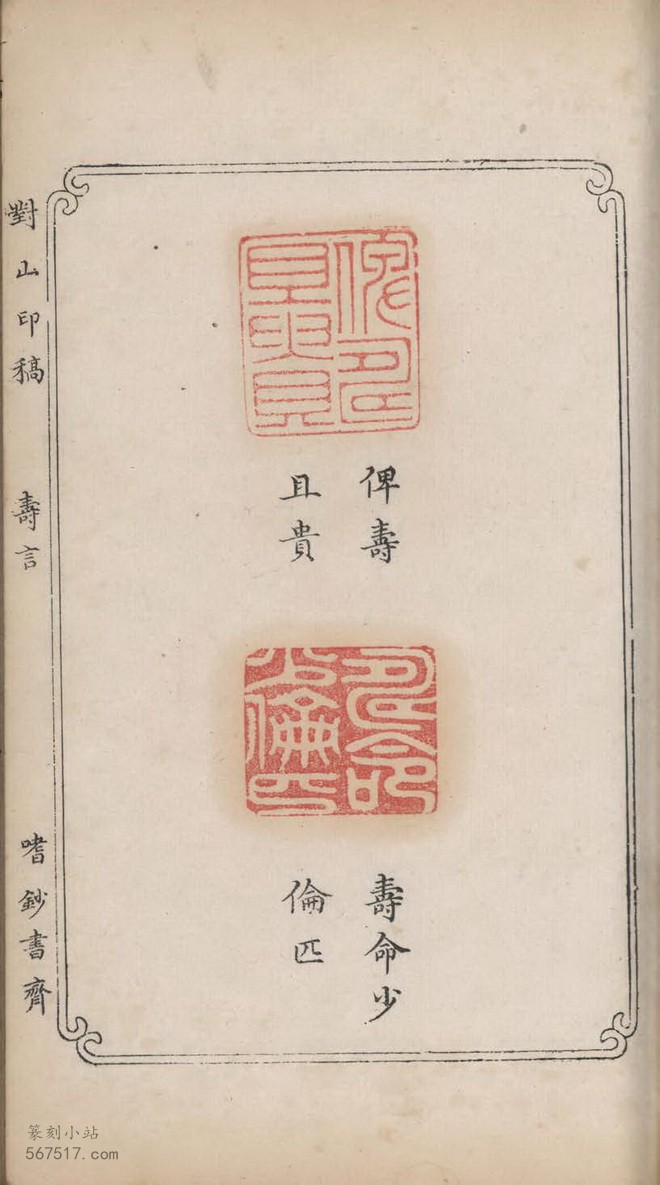 俾壽
且貴
壽命少
倫匹
對山印稿 壽言 嗜鈔書齋
篆刻小站
567517.com